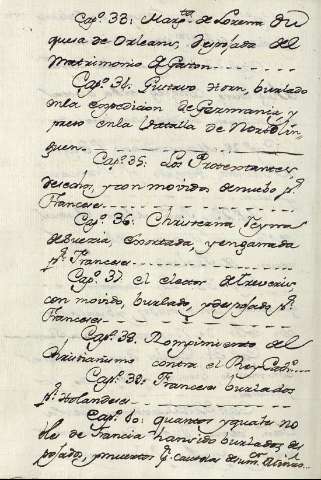 Cap.º 33: Marg.ta de Lorena du
quesa de Orleans, despojada del
Matrimonio de Gaston
Cap.º 34: Gustavo Horn, burlado
en la expedicion de Germania, y
preso en la Batalla de Nord lin
guen
Cap.º 35: Los Protestantes,
desechos, y con movidos de nuebo p.r
Franceses
Cap.º 36: Christeana Reyna
de Suezia exortada, y engañada
p.r Franceses
Cap.º 37: el elector de Treveris
con movido, burlado, y despojado p.r
Franceses
Cap.º 38: Rompimiento del
Christianismo contra el Rey Cath.co
Cap.º 39: Franceses burlados
p.r Holandeses
Cap.º 40: quantos y quales no
bles de Francia han sido burlados, des
pojados, y muertos p.r causa de un